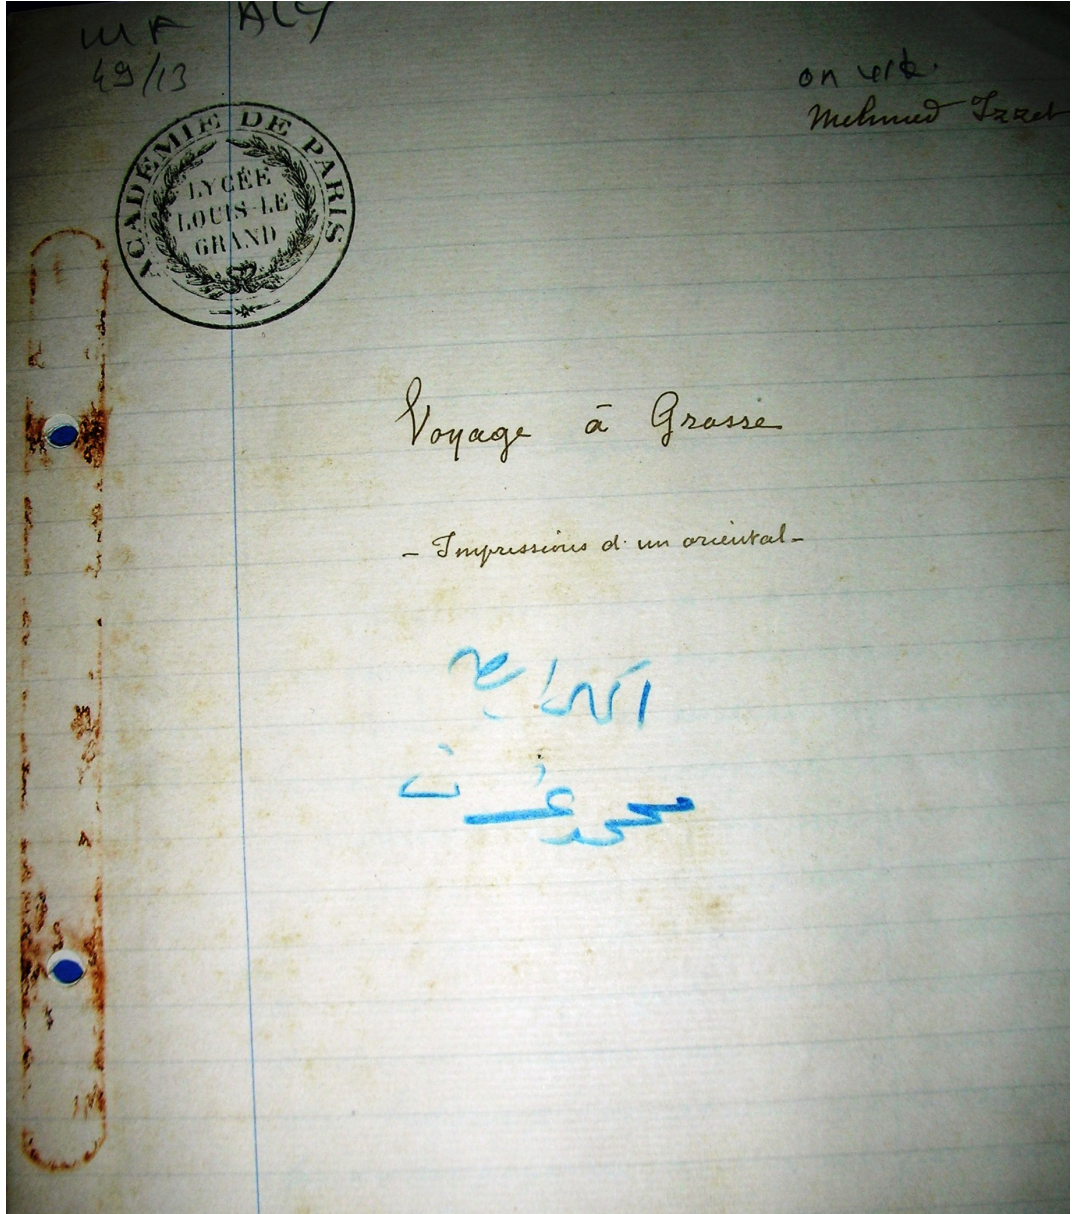 49/13
Mehmed Izzet
ACADÉMIE DE PARIS
LYCÉE
LOUIS-LE
GRAND
Voyage à Grasse
- Impressions d'un oriental -
محمد عزت